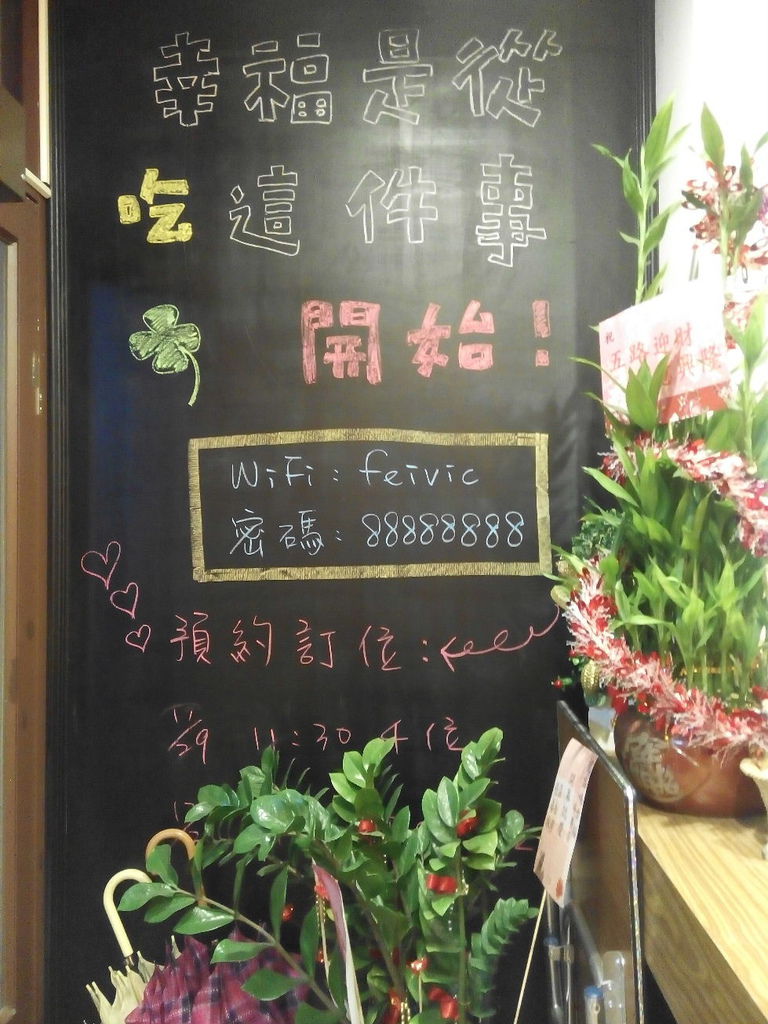 幸福是從
吃這件事
開始!
WiFi: feivic
密碼: 88888888
預約訂位:
11:30 4位
祝
五路迎財